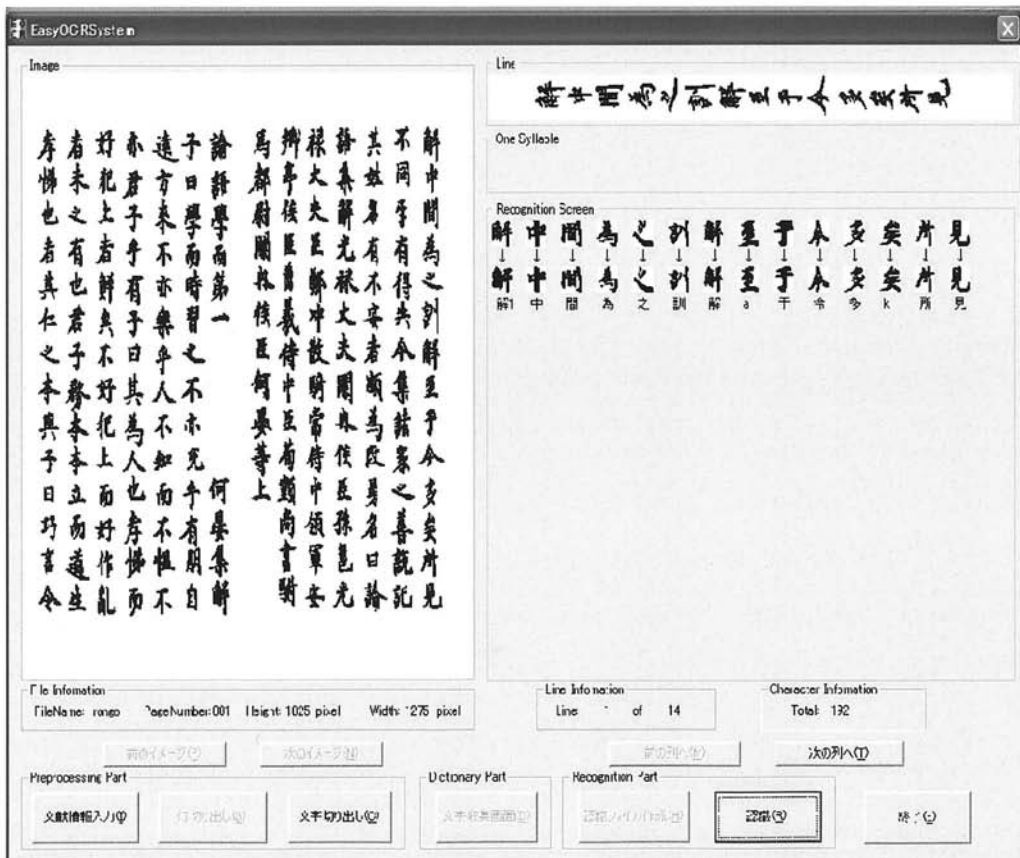 EasyOCRSystem
Image
解中間為之訓解至于今多矣所見
不同互有得失今集諸家之善説記
其姓名有不安者頗為改易名曰論
語集解光祿大夫關内侯臣孫邕光
祿大夫臣鄭冲散騎常侍中領軍安
鄉亭侯臣曹羲侍中臣荀顗尚書駙
馬都尉關内侯臣何晏等上
論語學而第一 何晏集解
子曰學而時習之不亦兌乎有朋自
遠方來不亦樂乎人不知而不慍不
亦君子乎有子曰其為人也孝悌而
好犯上者鮮矣不好犯上而好作亂
者未之有也君子務本本立而道生
孝悌也者其仁之本與子曰巧言令
Line
解中間為之訓解至于今多矣所見
One Syllable
Recognition Screen
解中間為之訓解至于今多矣所見
↓ ↓ ↓ ↓ ↓ ↓ ↓ ↓ ↓ ↓ ↓ ↓ ↓ ↓
解中間為之訓解至于今多矣所見
解1 中 間 為 之 訓 解 a 干 令 多 k 所 見
File Infomation
FileName: rongo PageNumber:001 Height: 1025 pixel Width: 1275 pixel
Line Infomation
Line: 1 of 14
Character Infomation
Total: 192
前のイメージ(P) 次のイメージ(N)
前の列へ 次の列へ(T)
Preprocessing Part
文献情報入力(I) 行切り出し 文字切り出し(C)
Dictionary Part
文字収集画面(D)
Recognition Part
認識(R)
終了